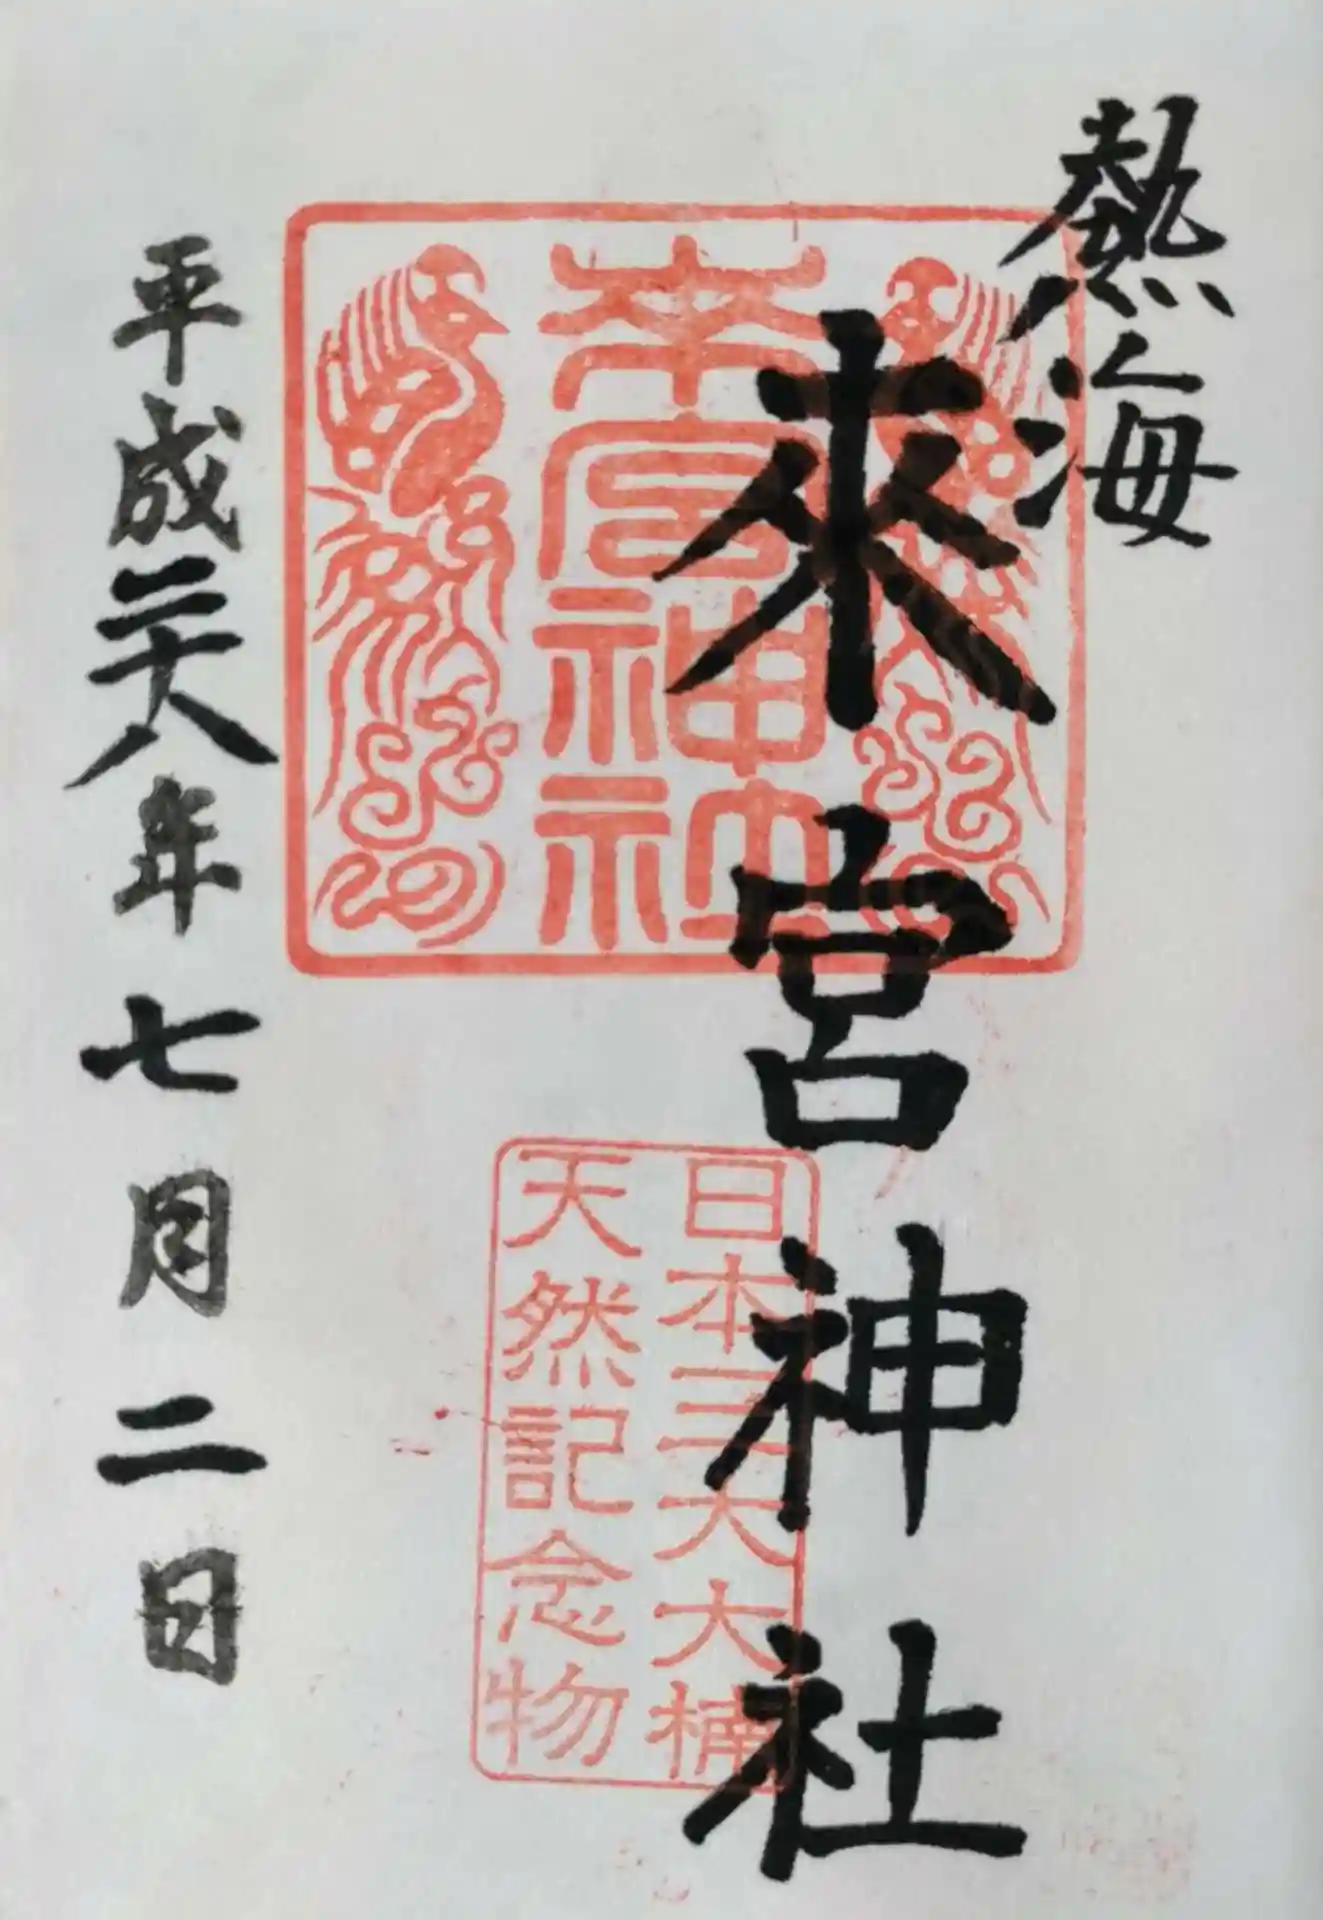 熱海
來宮神社
来宮神社
日本三大大楠
天然記念物
平成二十八年七月二日